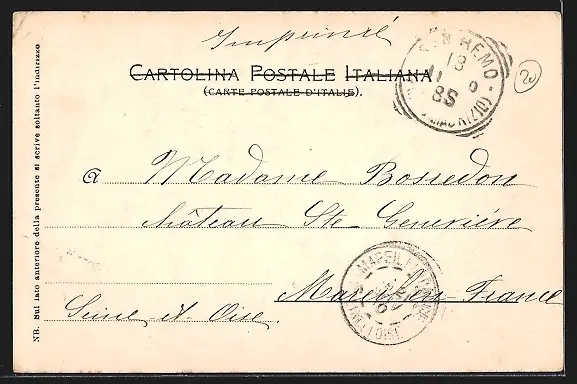 Imprimé
CARTOLINA POSTALE ITALIANA
(CARTE POSTALE D'ITALIE).
SAN REMO
18
8S
20
à Madame Bossedon
château Ste Geneviève
Mareil en France
Seine et Oise.
NB. Sul lato anteriore della presente si scrive soltanto l'indirizzo